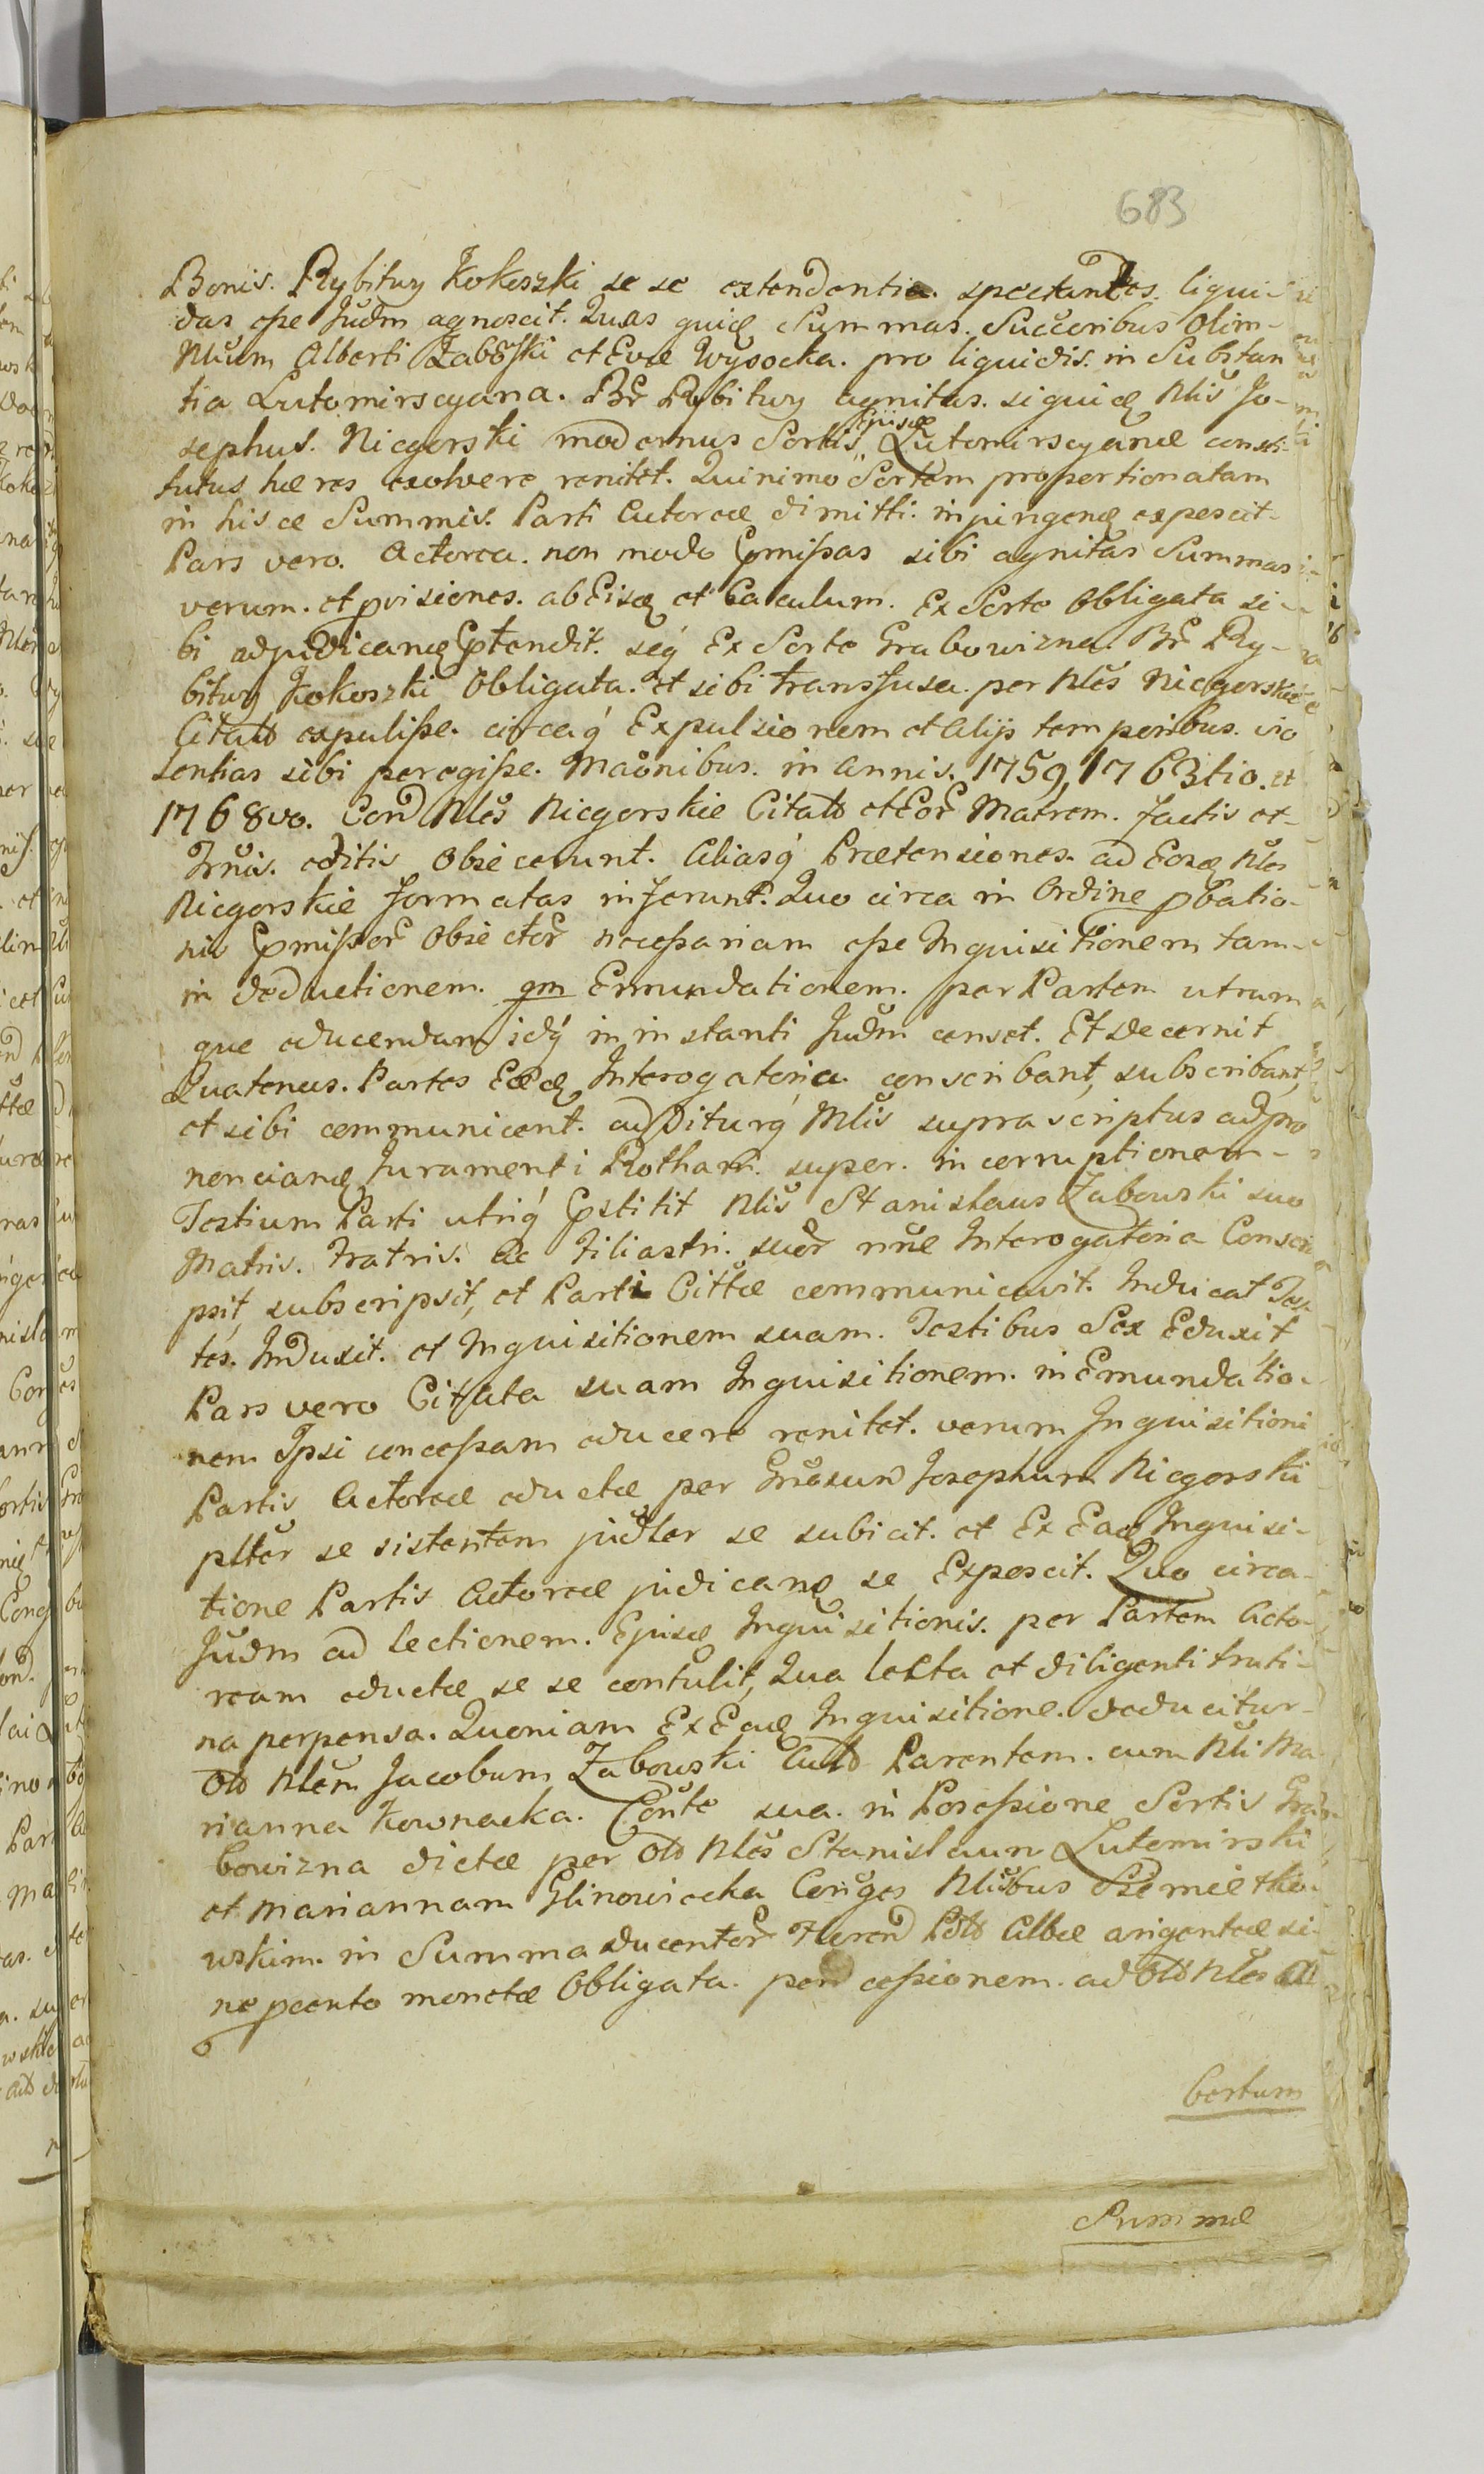 683
Bonis. Rybitwy Kokoszki se se extendentia. spectantes. liqui-
das esse Judm agnoscit. Quas quidę Summas. Succoribus olim-
Nlium Alberti Zabőski et Evæ Wysocka. pro liquidis. in Substan
tia Lutomirscyana. Br̃ Rybitwy agnitas. siquidę Nlis Jo-
sephus. Niegorski modernus Sortis Ejusdę Lutomirscyanæ consti-
tutus hæres exolvere renitet. Quinimo Sortem proportionatam
in hisce Summis. Parti Actoreæ dimitti. injungenę exposcit-
Pars vero. Actorea. non modo pmissas sibi agnitas Summas
verum. et pvisiones. ab Eisdę et Calculum. Ex Sorte Obligata si-
bi adjudicandę ptendit. seq́ Ex Sorte Grabowizna. Br̃ Ry-
bitwy Kokoszki Obligata. et sibi transfusa. per Nles Niegorskie
Citatos expulisse. circaq́ Expulsionem et Alijs temporibus. vio
lentias sibi peregisse. Maőnibus. in Annis. 1759, 1763tio. et
1768vo. Cond Nles Niegorskie Citatos et Eor̃ Matrem. factis et
Jnris. editis Obiecerunt. Aliasq́ Prætensiones. ad Eosdę Nles
Niegorskie formatas inferunt. Quo circa in Ordine pbatio-
nis pmissor̃ Obiector̃ necessariam esse Inquisitionem tam-
in deductionem. qm Emundationem. per Partem utram
que educendam idq́ in instanti Judm censet. Et decernit
Quatenus. Partes Eædę Interogatoria conscribant, subscribant,
et sibi communicent. adDiturq́ Mlis suprascriptus ad pro
nonciandę Juramenti Rotham. super. incorruptionem-
Testium Parti utriq́ pstitit Nlis Stanislaus Zabowski suo
Matris. Fratris. ac Filiastri. suőr nnẽ Interogatoria Conscri
psit, subscripsit, et Parti Cittæ communicavit. Inducat Tes-
tes. Induxit. et Inquisitionem suam. Testibus Sex Eduxit
Pars vero Citata suam Inquisitionem. in Emundatio-
nem Ipsi concessam educere renitet. verum Inquisitioni
Partis Actoreæ eductæ per Grősum Josephum Niegorski
plter se sistentem judler se subicit. et Ex Eadę Inquisi-
tione Partis Actoreæ judicandę se Exposcit. Quo circa-
Judm ad lectionem. Ejusdę Inquisitionis. per Partem Acto-
ream eductæ se se contulit, Qua lecta et diligenti truti-
na perpensa. Quoniam Ex Eadę Inquisitione. deducitur-
Old Nlem Jacobum Zabowski Actd Parentem. cum Nli Ma
rianna Kownacka. Cőnte sua. in Possessione Sortis Gra
bowizna dictæ per Old Nles Stanislaum Lutomirski
et Mariannam Glinowiecka Conges Nlibus Sziemietko-
wskim. in Summa ducentor̃ Floren Pold Albæ argenteæ si
ne pcento monetæ Obligata. pend cessionem. ad Old Nles Al
bertum
Summæ